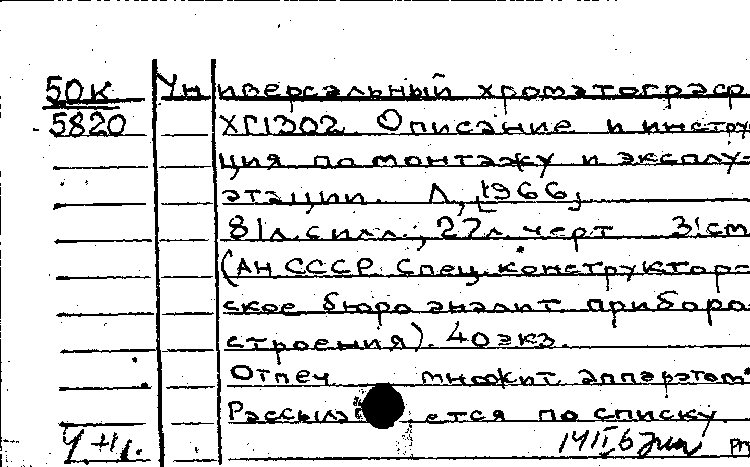 50к Универсальный хроматограф
5820 ХГ1302. Описание и инстру
ция по монтажу и эксплу-
атации. Л., 1966,
81л. с илл., 27л. черт 31см
(АН СССР. Спец. конструктор-
ское бюро аналит. прибора
строения). 40 экз.
Отпеч множит. аппаратом
Рассыла ется по списку